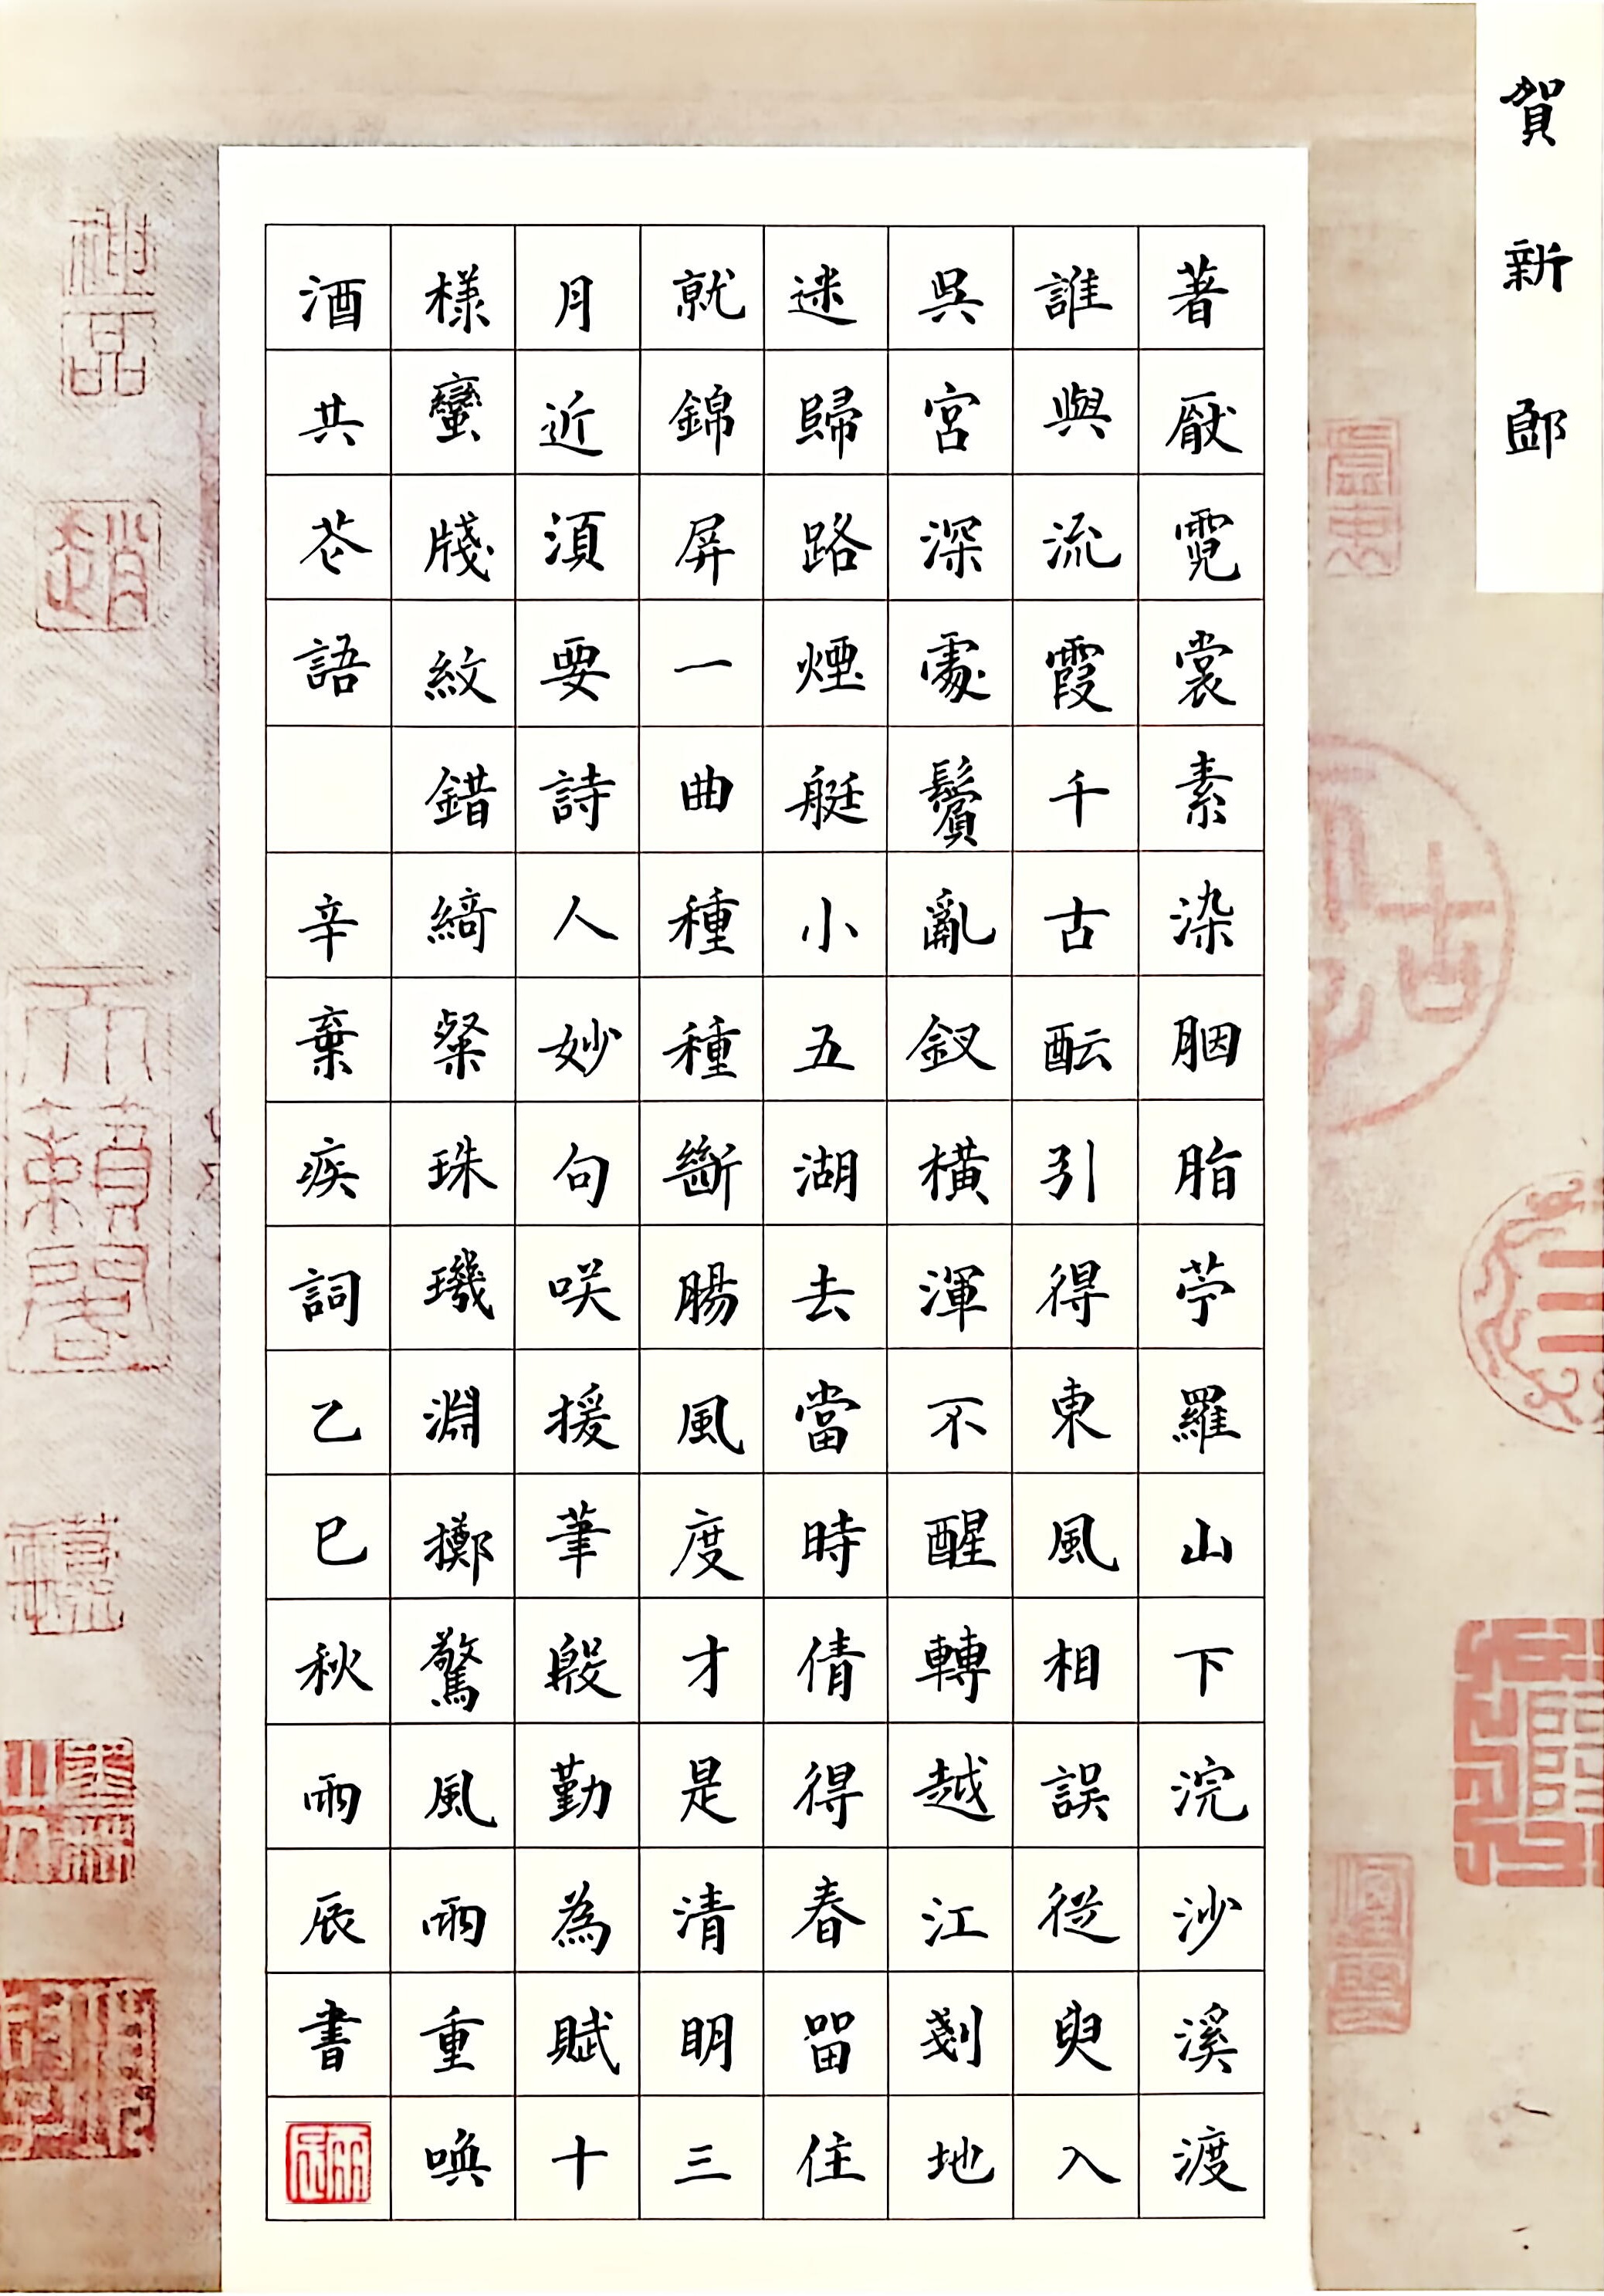 賀新郎
著厭霓裳素染胭脂苧羅山下浣沙溪渡
誰與流霞千古酝引得東風相誤從臾入
吳宮深處鬢亂釵橫渾不醒轉越江剗地
迷歸路煙艇小五湖去當時倩得春留住
就錦屏一曲種種斷腸風度才是清明三
月近須要詩人妙句咲援筆殷勤為賦十
樣蠻牋紋錯綺粲珠璣淵擲驚風雨重喚
酒共花語
辛棄疾詞乙巳秋雨辰書
雨辰